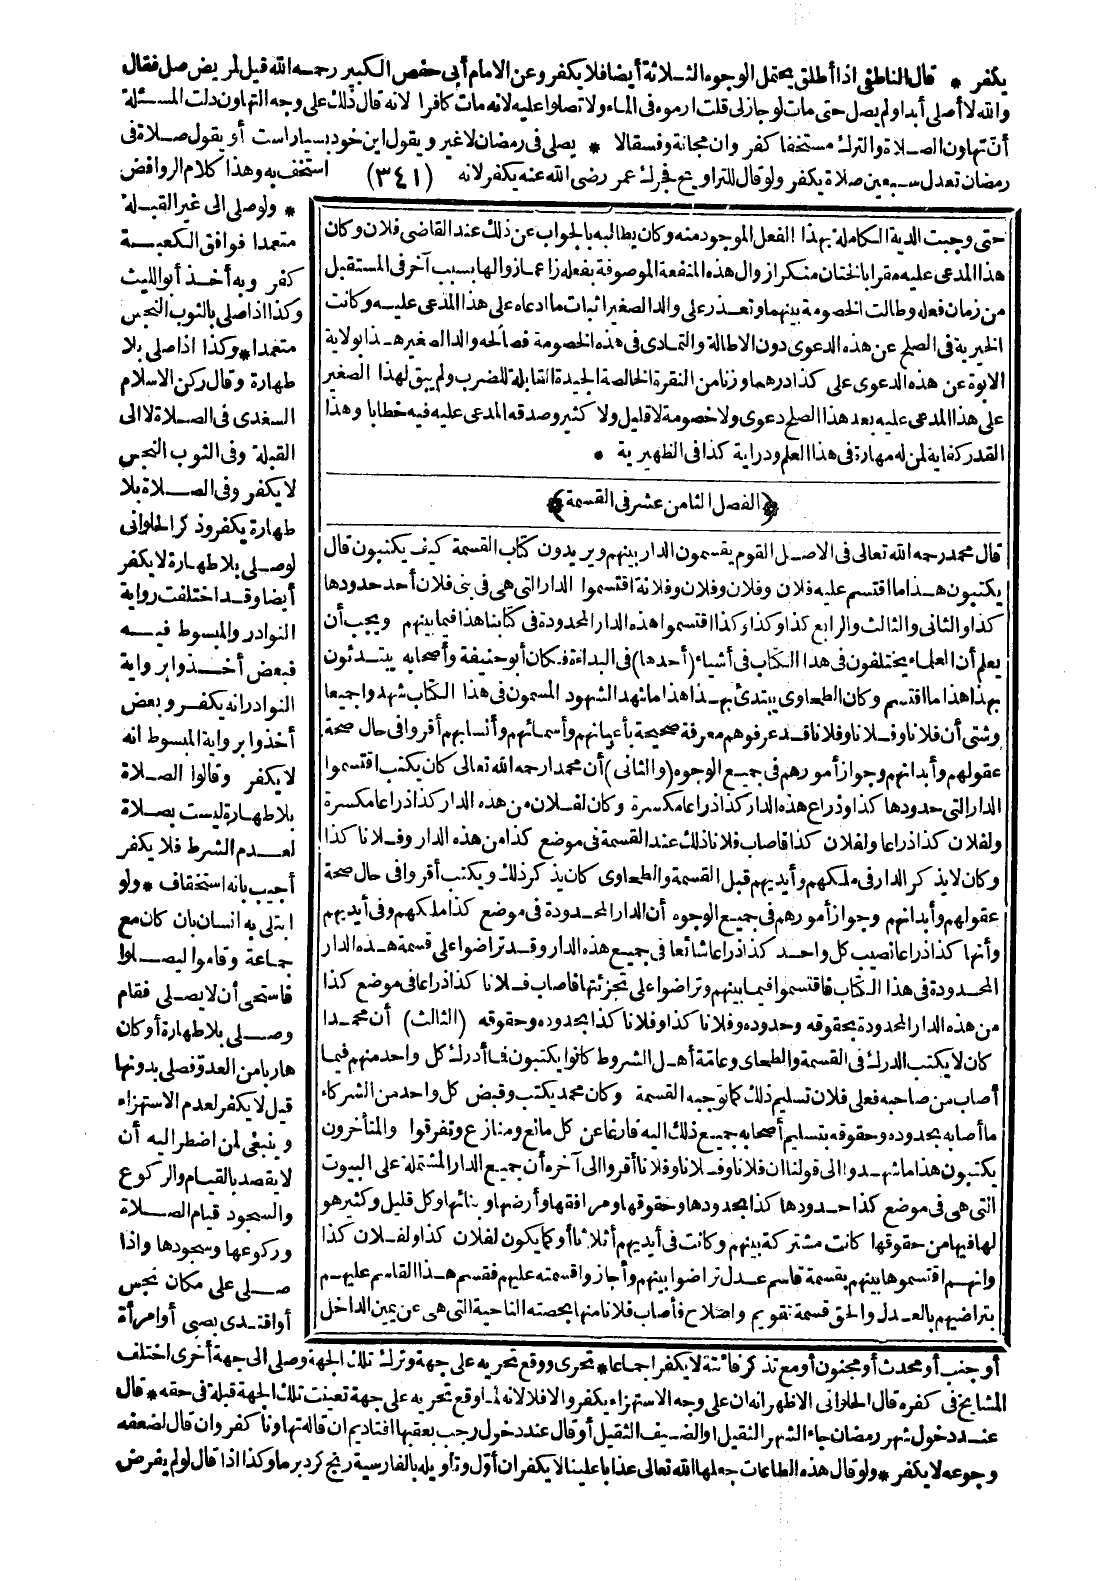 يكفر * قال الناطفي اذا أطلق يحتمل الوجوه الثلاثة أيضا فلا يكفر وعن الامام أبي حفص الكبير رحمه الله قيل لمريض صل فقال
والله لا أصلي أبدا ولم يصل حتى مات لو جاز لي قلت ارموه في الماء ولا تصلوا عليه لانه مات كافرا لانه قال ذلك على وجه التهاون دلت المسئلة
أن تهاون الصلاة والترك مستخفا كفر وان مجانة وفسقا لا * يصلي في رمضان لا غير ويقول اين خود بسيار است أو يقول صلاة في
رمضان تعدل سبعين صلاة يكفر ولو قال للتراويح فجرك عمر رضي الله عنه يكفر لانه (٣٤١) استخف به وهذا كلام الروافض
* ولو صلى الى غير القبلة
متعمدا فوافق الكعبة
كفر وبه أخذ أبو الليث
وكذا اذا صلى بالثوب النجس
متعمدا * وكذا اذا صلى بلا
طهارة وقال ركن الاسلام
السغدي في الصلاة لا الى
القبلة وفي الثوب النجس
لا يكفر وفي الصلاة بلا
طهارة يكفر وذكر الحلواني
لو صلى بلا طهارة لا يكفر
أيضا وقد اختلفت رواية
النوادر والمبسوط فيه
فبعض أخذوا برواية
النوادر انه يكفر وبعض
أخذوا برواية المبسوط انه
لا يكفر وقالوا الصلاة
بلا طهارة ليست بصلاة
لعدم الشرط فلا يكفر
أجيب بانه استخفاف * ولو
ابتلي به انسان بان كان مع
جماعة وقاموا ليصلوا
فاستحى أن لا يصلي فقام
وصلى بلا طهارة أو كان
هاربا من العدو فصلى بدونها
قيل لا يكفر لعدم الاستهزاء
وينبغي لمن اضطر اليه أن
لا يقصد بالقيام والركوع
والسجود قيام الصلاة
وركوعها وسجودها واذا
صلى على مكان نجس
أو اقتدى بصبي أو امرأة
حتى وجبت الدية الكاملة بهذا الفعل الموجود منه وكان يطالبه بالجواب عن ذلك عند القاضي فلان وكان
هذا المدعى عليه مقرا بالختان منكرا زوال هذه المنفعة الموصوفة بفعله زاعما زوالها بسبب آخر في المستقبل
من زمان فعله وطالت الخصومة بينهما وتعذر على والد الصغير اثبات ما ادعاه على هذا المدعى عليه وكانت
الخيرية في الصلح عن هذه الدعوى دون الاطالة والتمادي في هذه الخصومة فصالحه والد الصغير هذا بولاية
الابوة عن هذه الدعوى على كذا درهما وزنا من النقرة الخالصة الجيدة القابلة للضرب ولم يبق لهذا الصغير
على هذا المدعى عليه بعد هذا الصلح دعوى ولا خصومة لا قليل ولا كثير وصدقه المدعى عليه فيه خطابا وهذا
القدر كفاية لمن له مهارة في هذا العلم ودراية كذا في الظهيرية *
﴿الفصل الثامن عشر في القسمة﴾
قال محمد رحمه الله تعالى في الاصل القوم يقسمون الدار بينهم ويريدون كتاب القسمة كيف يكتبون قال
يكتبون هذا ما اقتسم عليه فلان وفلان وفلان وفلانة اقتسموا الدار التي هي في بني فلان أحد حدودها
كذا والثاني والثالث والرابع كذا وكذا وكذا اقتسموا هذه الدار المحدودة في كتابنا هذا فيما بينهم ويجب أن
يعلم أن العلماء يختلفون في هذا الكتاب في أشياء (أحدها) في البداءة فكان أبو حنيفة وأصحابه يبتدئون
بهذا هذا ما اقتسم وكان الطحاوي يبتدئ بهذا هذا ما شهد الشهود المسمون في هذا الكتاب شهدوا جميعا
وشتى أن فلانا وفلانا وفلانا قد عرفوهم معرفة صحيحة بأعيانهم وأسمائهم وأنسابهم أقروا في حال صحة
عقولهم وأبدانهم وجواز أمورهم في جميع الوجوه (والثاني) أن محمدا رحمه الله تعالى كان يكتب اقتسموا
الدار التي حدودها كذا وذراع هذه الدار كذا ذراعا مكسرة وكان لفلان من هذه الدار كذا ذراعا مكسرة
ولفلان كذا ذراعا ولفلان كذا فاصاب فلانا ذلك عند القسمة في موضع كذا من هذه الدار وفلانا كذا
وكان لا يذكر الدار في ملكهم وأيديهم قبل القسمة والطحاوي كان يذكر ذلك ويكتب أقروا في حال صحة
عقولهم وأبدانهم وجواز أمورهم في جميع الوجوه أن الدار المحدودة في موضع كذا ملكهم وفي أيديهم
وأنها كذا ذراعا نصيب كل واحد كذا ذراعا شائعا في جميع هذه الدار وقد تراضوا على قسمة هذه الدار
المحدودة في هذا الكتاب فاقتسموا فيما بينهم وتراضوا على تجزئتها فاصاب فلانا كذا ذراعا في موضع كذا
من هذه الدار المحدودة بحقوقه وحدوده وفلانا كذا وفلانا كذا بحدوده وحقوقه (الثالث) أن محمدا
كان لا يكتب الدرك في القسمة والطحاوي وعامة أهل الشروط كانوا يكتبون فما أدرك كل واحد منهم فيما
أصاب من صاحبه فعلى فلان تسليم ذلك كما توجبه القسمة وكان محمد يكتب وقبض كل واحد من الشركاء
ما أصابه بحدوده وحقوقه بتسليم أصحابه جميع ذلك اليه فارغا عن كل مانع ومنازع وتفرقوا والمتأخرون
يكتبون هذا ما شهدوا الى قولنا ان فلانا وفلانا وفلانا أقروا الى آخره أن جميع الدار المشتملة على البيوت
التي هي في موضع كذا حدودها كذا بحدودها وحقوقها ومرافقها وأرضها وبنائها وكل قليل وكثير هو
لها فيها من حقوقها كانت مشتركة بينهم وكانت في أيديهم أثلاثا أو كما يكون لفلان كذا ولفلان كذا
وانهم اقتسموها بينهم بقسمة قاسم عدل تراضوا بينهم وأجازوا قسمته عليهم فقسم هذا القاسم عليهم
بتراضيهم بالعدل والحق قسمة تقويم واصلاح فأصاب فلانا منها بحصته الناحية التي هي عن يمين الداخل
أو جنب أو محدث أو مجنون أو مع تذكر فائتة لا يكفر اجماعا * تحرى ووقع تحريه على جهة وترك تلك الجهة وصلى الى جهة أخرى اختلف
المشايخ في كفره قال الحلواني الاظهر انه ان على وجه الاستهزاء يكفر والا فلا لانه لما وقع تحريه على جهة تعينت تلك الجهة قبلة في حقه * قال
عند دخول شهر رمضان جاء الشهر الثقيل او الضيف الثقيل أو قال عند دخول رجب بعقبها افتاديم ان قاله تهاونا كفر وان قال لضعفه
وجوعه لا يكفر * ولو قال هذه الطاعات جعلها الله تعالى عذابا علينا لا يكفر ان أول وتأويله بالفارسية رنج كرد بر ما وكذا اذا قال لو لم يفرض